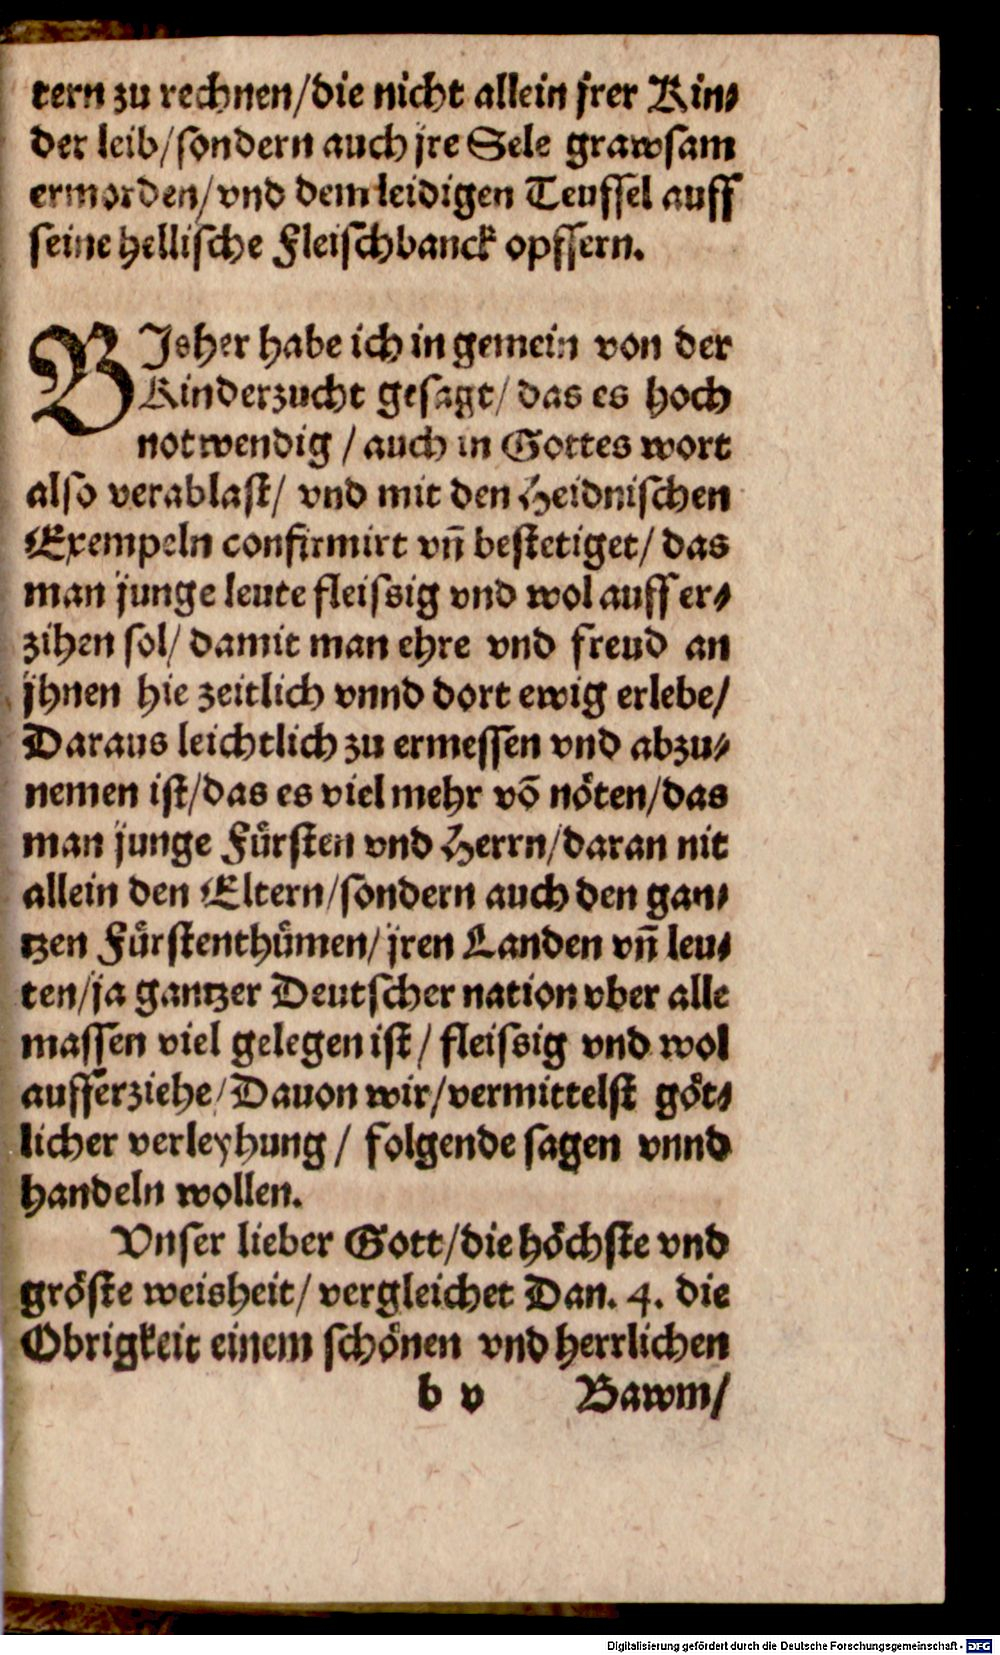 tern zu rechnen/die nicht allein jrer Kin⸗
der leib/sondern auch jre Sele grawsam
ermorden/vnd dem leidigen Teuffel auff
seine hellische Fleischbanck opffern.
BIsher habe ich in gemein von der
Kinderzucht gesagt/das es hoch
notwendig/auch in Gottes wort
also verablast/ vnd mit den Heidnischen
Exempeln confirmirt vn̄ bestetiget/das
man junge leute fleissig vnd wol auff er⸗
zihen sol/damit man ehre vnd freud an
jhnen hie zeitlich vnnd dort ewig erlebe/
Daraus leichtlich zu ermessen vnd abzu⸗
nemen ist/das es viel mehr vō nöten/das
man junge Fürsten vnd Herrn/daran nit
allein den Eltern/sondern auch den gan⸗
tzen Fürstenthümen/jren Landen vn̄ leu⸗
ten/ja gantzer Deutscher nation vber alle
massen viel gelegen ist/fleissig vnd wol
aufferziehe/Dauon wir/vermittelst göt⸗
licher verleyhung/ folgende sagen vnnd
handeln wollen.
Vnser lieber Gott/die höchste vnd
gröste weisheit/vergleichet Dan. 4. die
Obrigkeit einem schönen vnd herrlichen
b v Bawm/
Digitalisierung gefördert durch die Deutsche Forschungsgemeinschaft - DFG